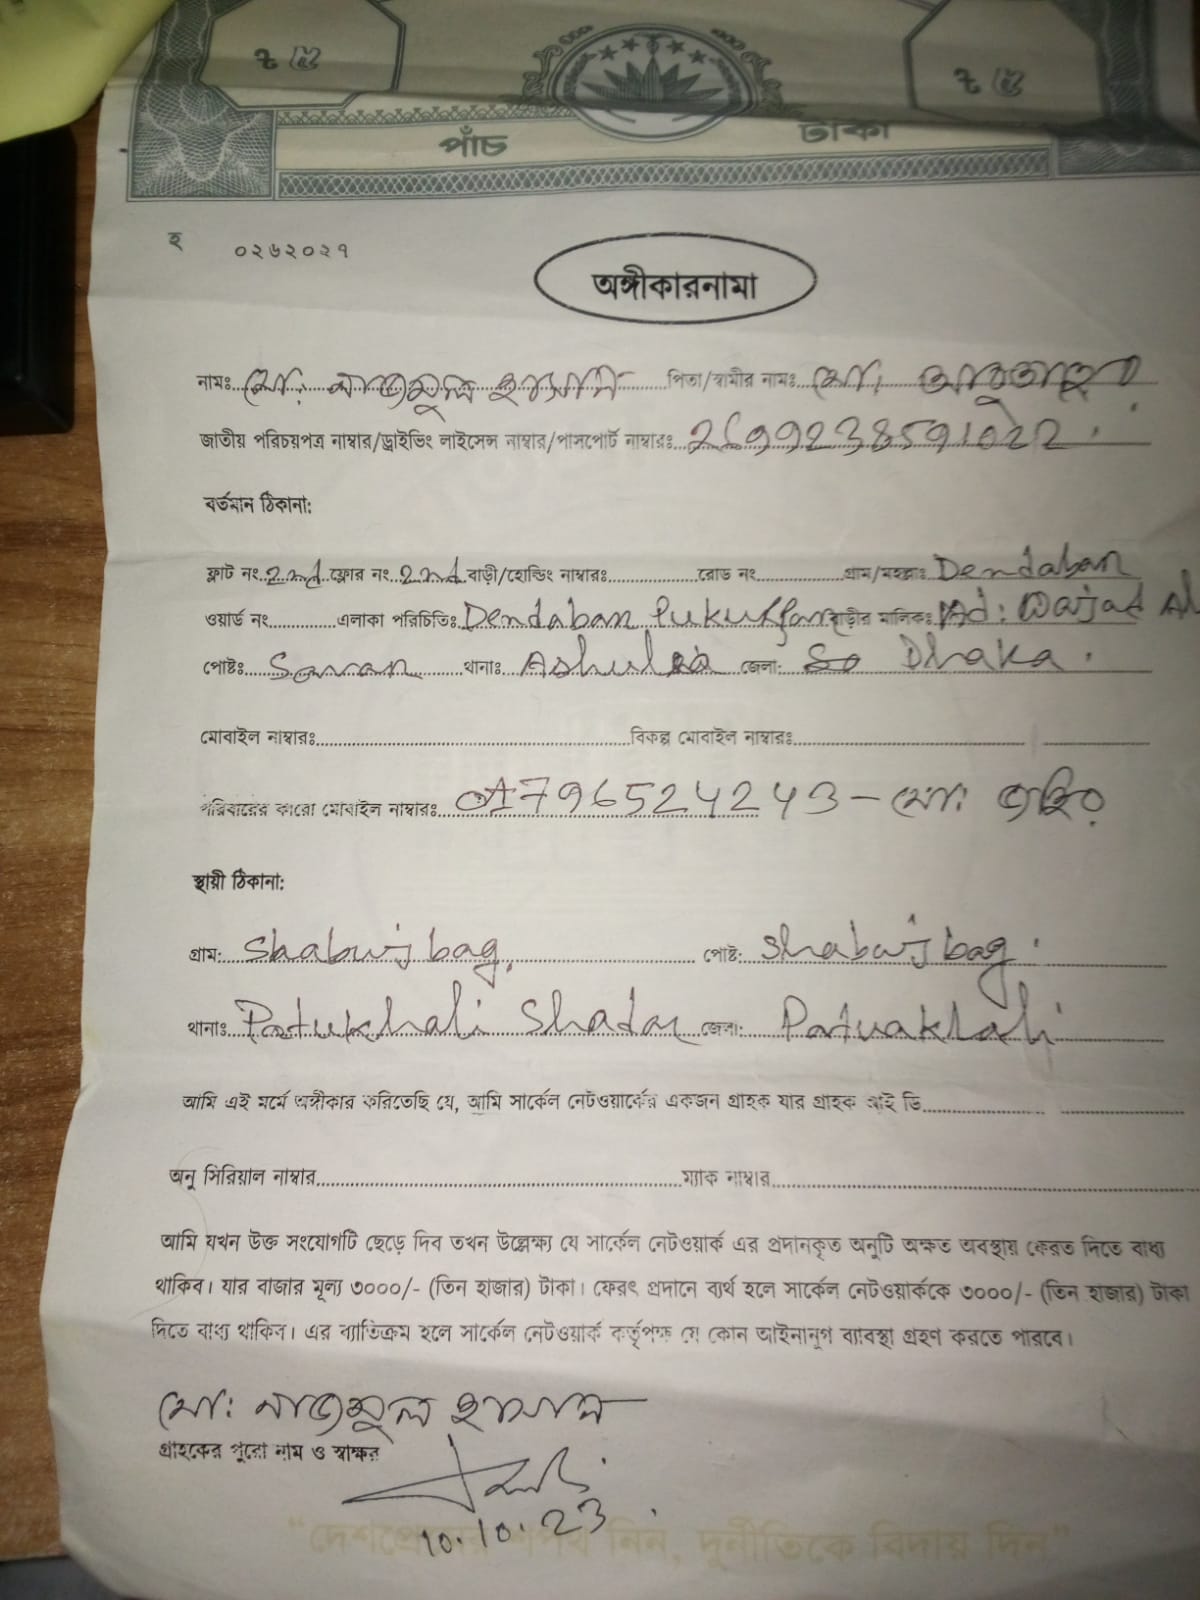 ২ ৫ ২ ৫
পাঁচ টাকা
হ ০২৬২০২৭
অঙ্গীকারনামা
নামঃ মো: নাজমুল হাসান পিতা/স্বামীর নামঃ মো:
জাতীয় পরিচয়পত্র নাম্বার/ড্রাইভিং লাইসেন্স নাম্বার/পাসপোর্ট নাম্বারঃ
বর্তমান ঠিকানা:
ফ্লাট নং 2nd ফ্লোর নং 2nd বাড়ী/হোল্ডিং নাম্বারঃ রোড নং গ্রাম/মহল্লাঃ Dendaban
ওয়ার্ড নং এলাকা পরিচিতিঃ Dendaban Pukurpar বাড়ীর মালিকঃ Md: Wajad Al
পোষ্টঃ Savar থানাঃ Ashulia জেলা: Dhaka.
মোবাইল নাম্বারঃ বিকল্প মোবাইল নাম্বারঃ
পরিবারের কারো মোবাইল নাম্বারঃ 01796524243 - মো:
স্থায়ী ঠিকানা:
গ্রাম: Shabujbag. পোষ্ট: Shabujbag.
থানাঃ Patukhali Shadar জেলা: Patuakhali
আমি এই মর্মে অঙ্গীকার করিতেছি যে, আমি সার্কেল নেটওয়ার্কের একজন গ্রাহক যার গ্রাহক আই ডি
অনু সিরিয়াল নাম্বার ম্যাক নাম্বার
আমি যখন উক্ত সংযোগটি ছেড়ে দিব তখন উল্লেক্ষ্য যে সার্কেল নেটওয়ার্ক এর প্রদানকৃত অনুটি অক্ষত অবস্থায় ফেরত দিতে বাধ্য
থাকিব। যার বাজার মূল্য ৩০০০/- (তিন হাজার) টাকা। ফেরৎ প্রদানে ব্যর্থ হলে সার্কেল নেটওয়ার্ককে ৩০০০/- (তিন হাজার) টাকা
দিতে বাধ্য থাকিব। এর ব্যাতিক্রম হলে সার্কেল নেটওয়ার্ক কর্তৃপক্ষ যে কোন আইনানুগ ব্যাবস্থা গ্রহণ করতে পারবে।
মো: নাজমুল হাসান
গ্রাহকের পুরো নাম ও স্বাক্ষর
10.10.23
"দেশপ্রেমের শপথ নিন, দুর্নীতিকে বিদায় দিন"